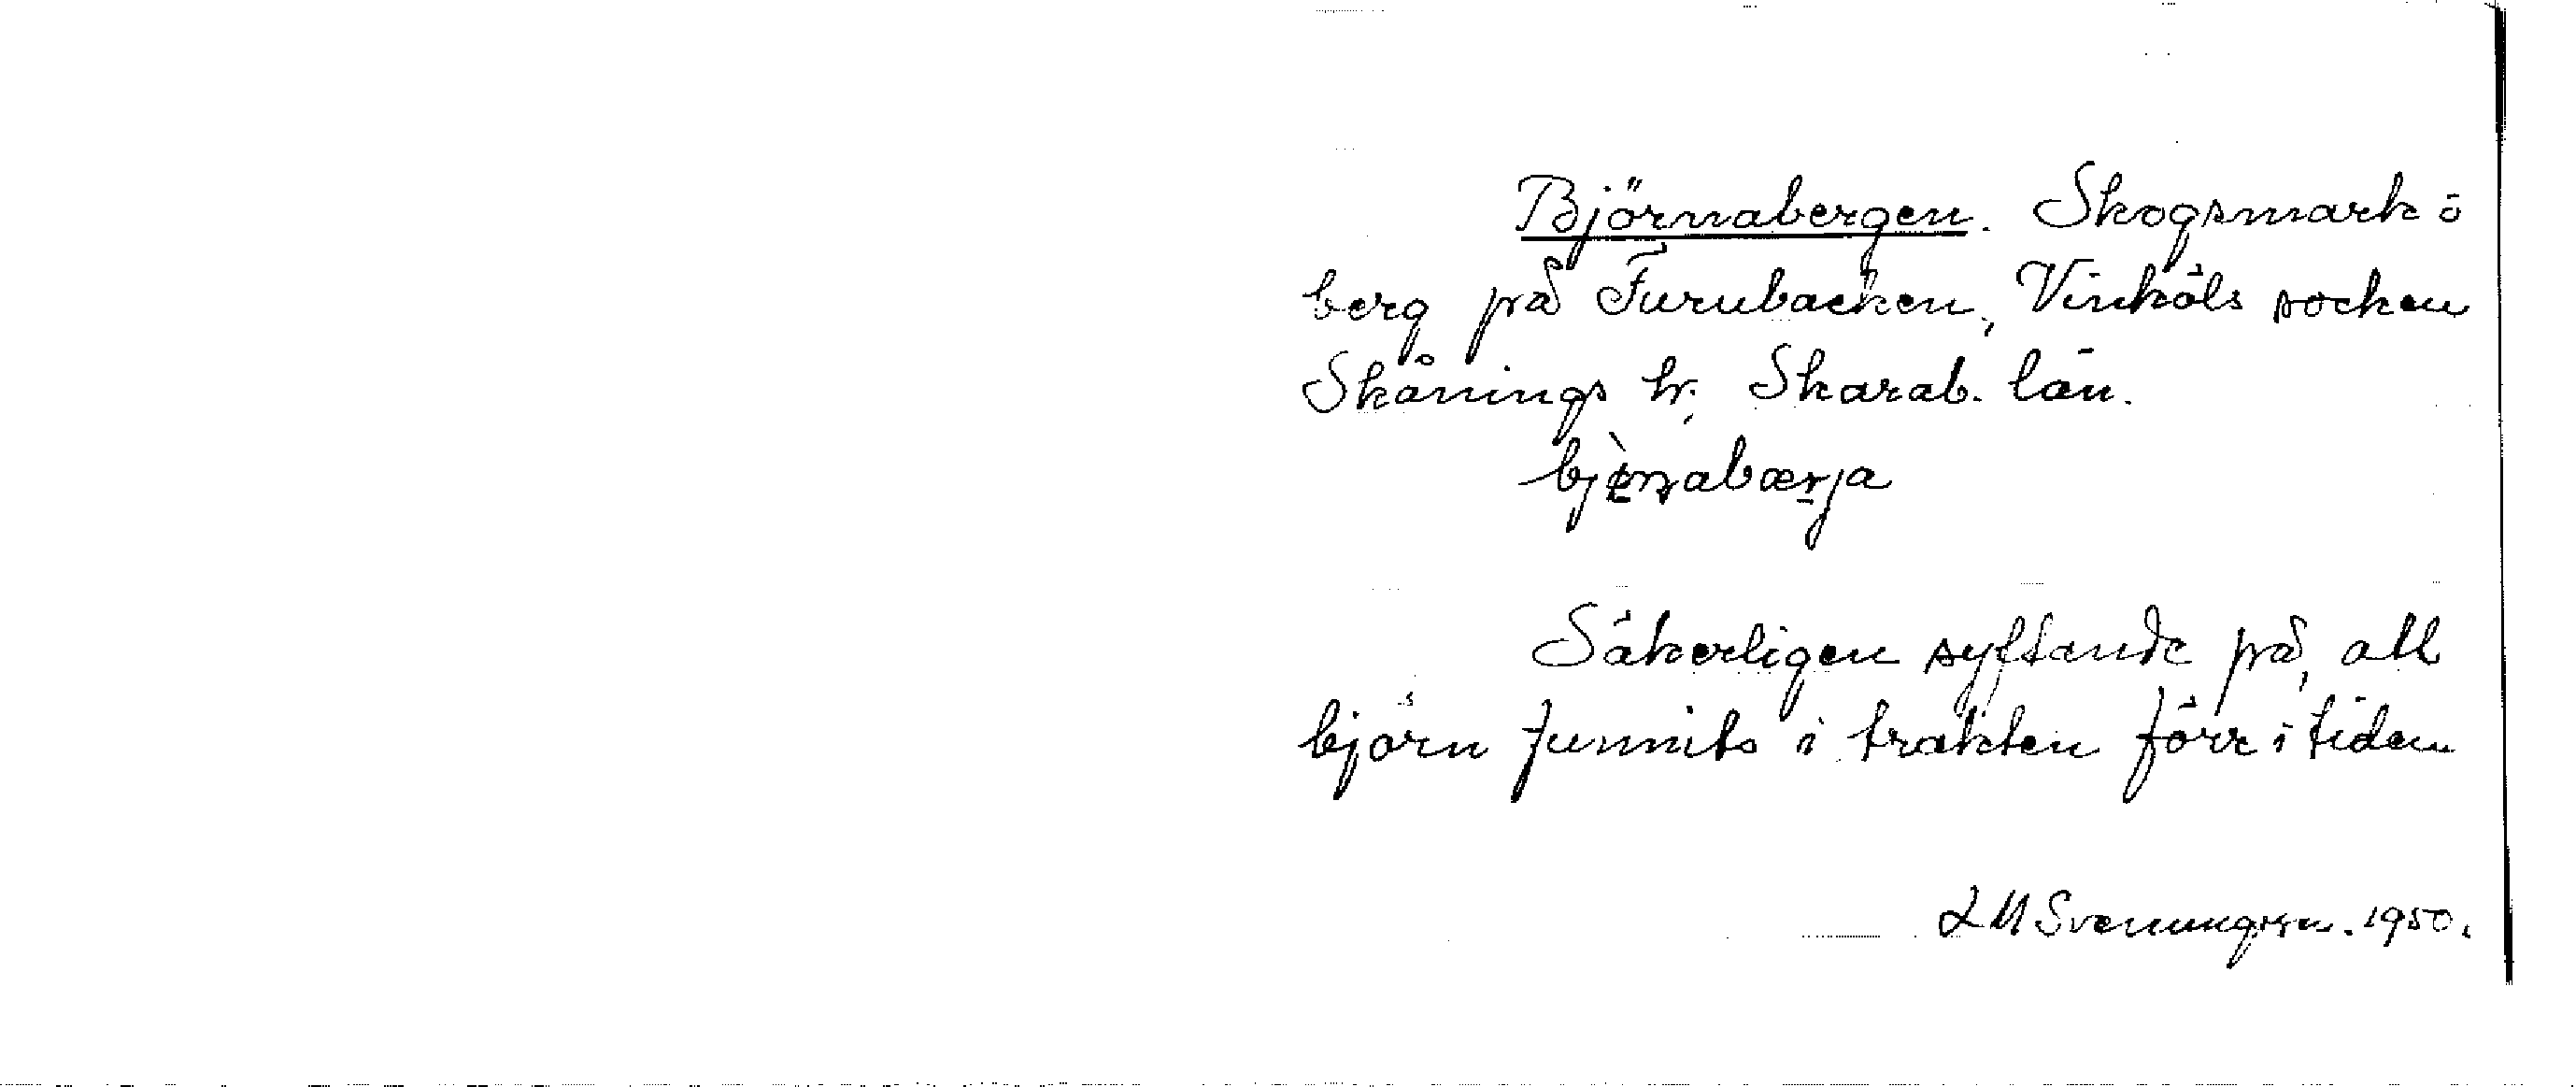 Björnabergen. Skogsmark ö
berg på Furubacken, Vinköls socken
Skånings hr, Skarab. län.
bjènabærja
Säkerligen syftande på, att
björn funnits i trakten förr i tiden
L M Svenungsson. 1950.